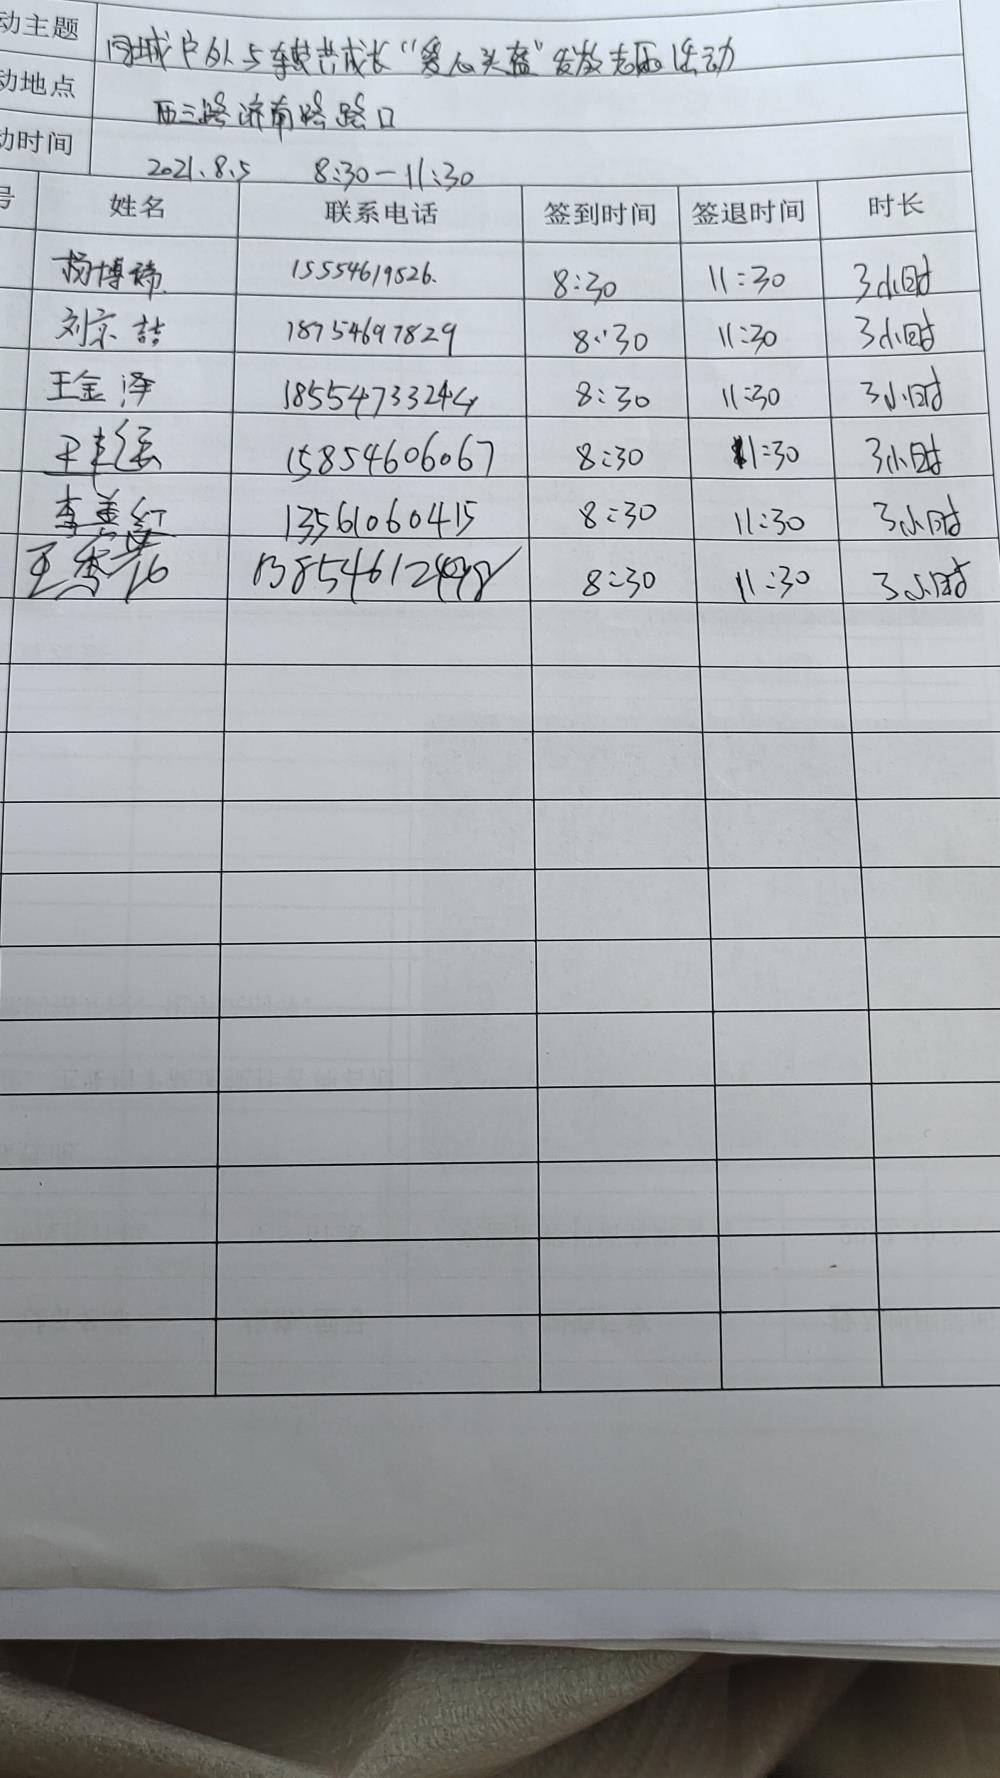 动主题 同城户外与辖共成长“爱心头盔”发放志愿活动
动地点 西三路济南路路口
动时间 2021.8.5 8:30-11:30
号 姓名 联系电话 签到时间 签退时间 时长
杨博 15554619526. 8:30 11:30 3小时
刘京喆 18754697829 8:30 11:30 3小时
王金泽 18554733244 8:30 11:30 3小时
王 15854606067 8:30 11:30 3小时
李美红 13561060415 8:30 11:30 3小时
王秀 8:30 11:30 3小时